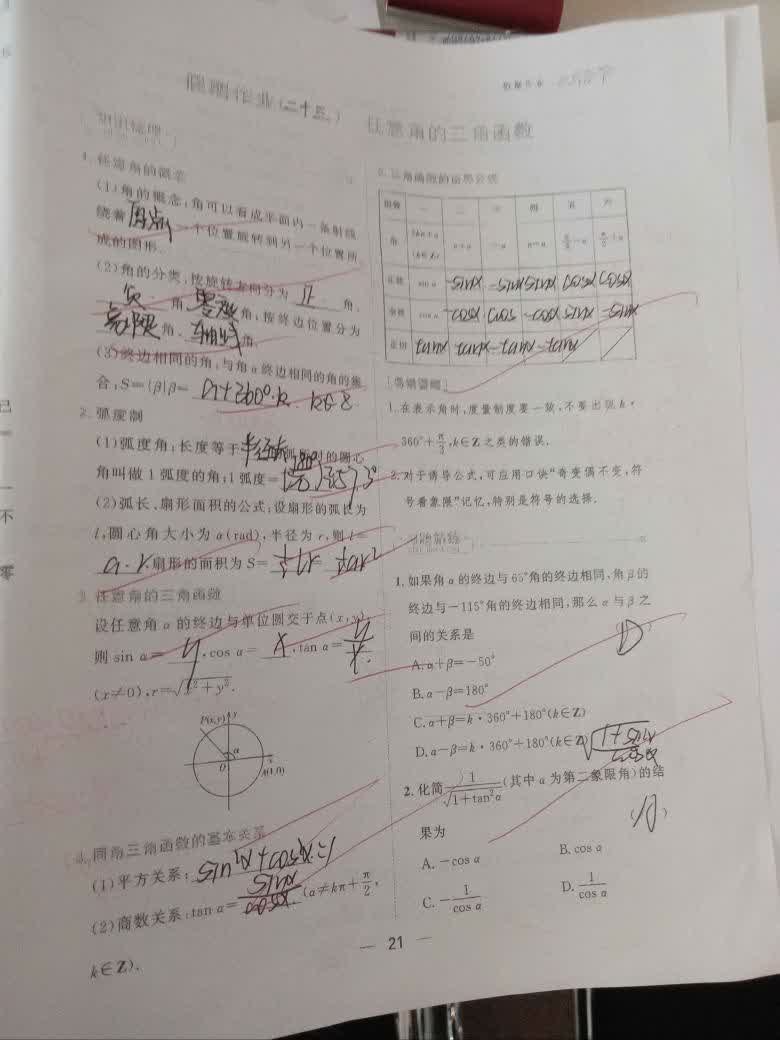 假期作业(二十三)
任意角的三角函数
知识梳理
1.任意角的概念
(1)角的概念:角可以看成平面内一条射线
绕着 原点从 一个位置旋转到另一个位置所
成的图形.
(2)角的分类:按旋转方向分为 正 角、
负 角、零 角;按终边位置分为
象限 角、轴线 角.
(3)终边相同的角:与角α终边相同的角的集
合:S={β|β= α+360°·k, k∈Z
2.弧度制
(1)弧度角:长度等于 半径
角叫做1弧度的角;1弧度=
(2)弧长、扇形面积的公式:设扇形的弧长为
l,圆心角大小为α(rad),半径为r,则l=
α·r,扇形的面积为S= ½lr = ½αr²
3.任意角的三角函数
设任意角α的终边与单位圆交于点(x,y)
则 sin α= y ,cos α= x ,tan α= y/x
(x≠0),r=√x²+y².
P(x,y) y
α
O A(1,0) x
4.同角三角函数的基本关系
(1)平方关系: sin²α+cos²α=1
(2)商数关系:tan α= sinα/cosα (α≠kπ+π/2,
k∈Z).
5.三角函数的诱导公式
函数 一 二 三 四 五 六
角 2kπ+α (k∈Z) π+α -α π-α π/2-α π/2+α
正弦 sin α -sinα -sinα sinα cosα cosα
余弦 cos α -cosα cosα -cosα sinα -sinα
正切 tanα tanα -tanα -tanα
易错警醒
1.在表示角时,度量制度要一致,不要出现k·
360°+π/3,k∈Z之类的错误.
2.对于诱导公式,可应用口诀“奇变偶不变,符
号看象限”记忆,特别是符号的选择.
1.如果角α的终边与65°角的终边相同,角β的
终边与-115°角的终边相同,那么α与β之
间的关系是 (D)
A.α+β=-50°
B.α-β=180°
C.α+β=k·360°+180°(k∈Z)
D.α-β=k·360°+180°(k∈Z)
2.化简 1/√1+tan²α (其中α为第二象限角)的结
果为 (A)
A.-cos α B.cos α
C.-1/cos α D.1/cos α
— 21 —